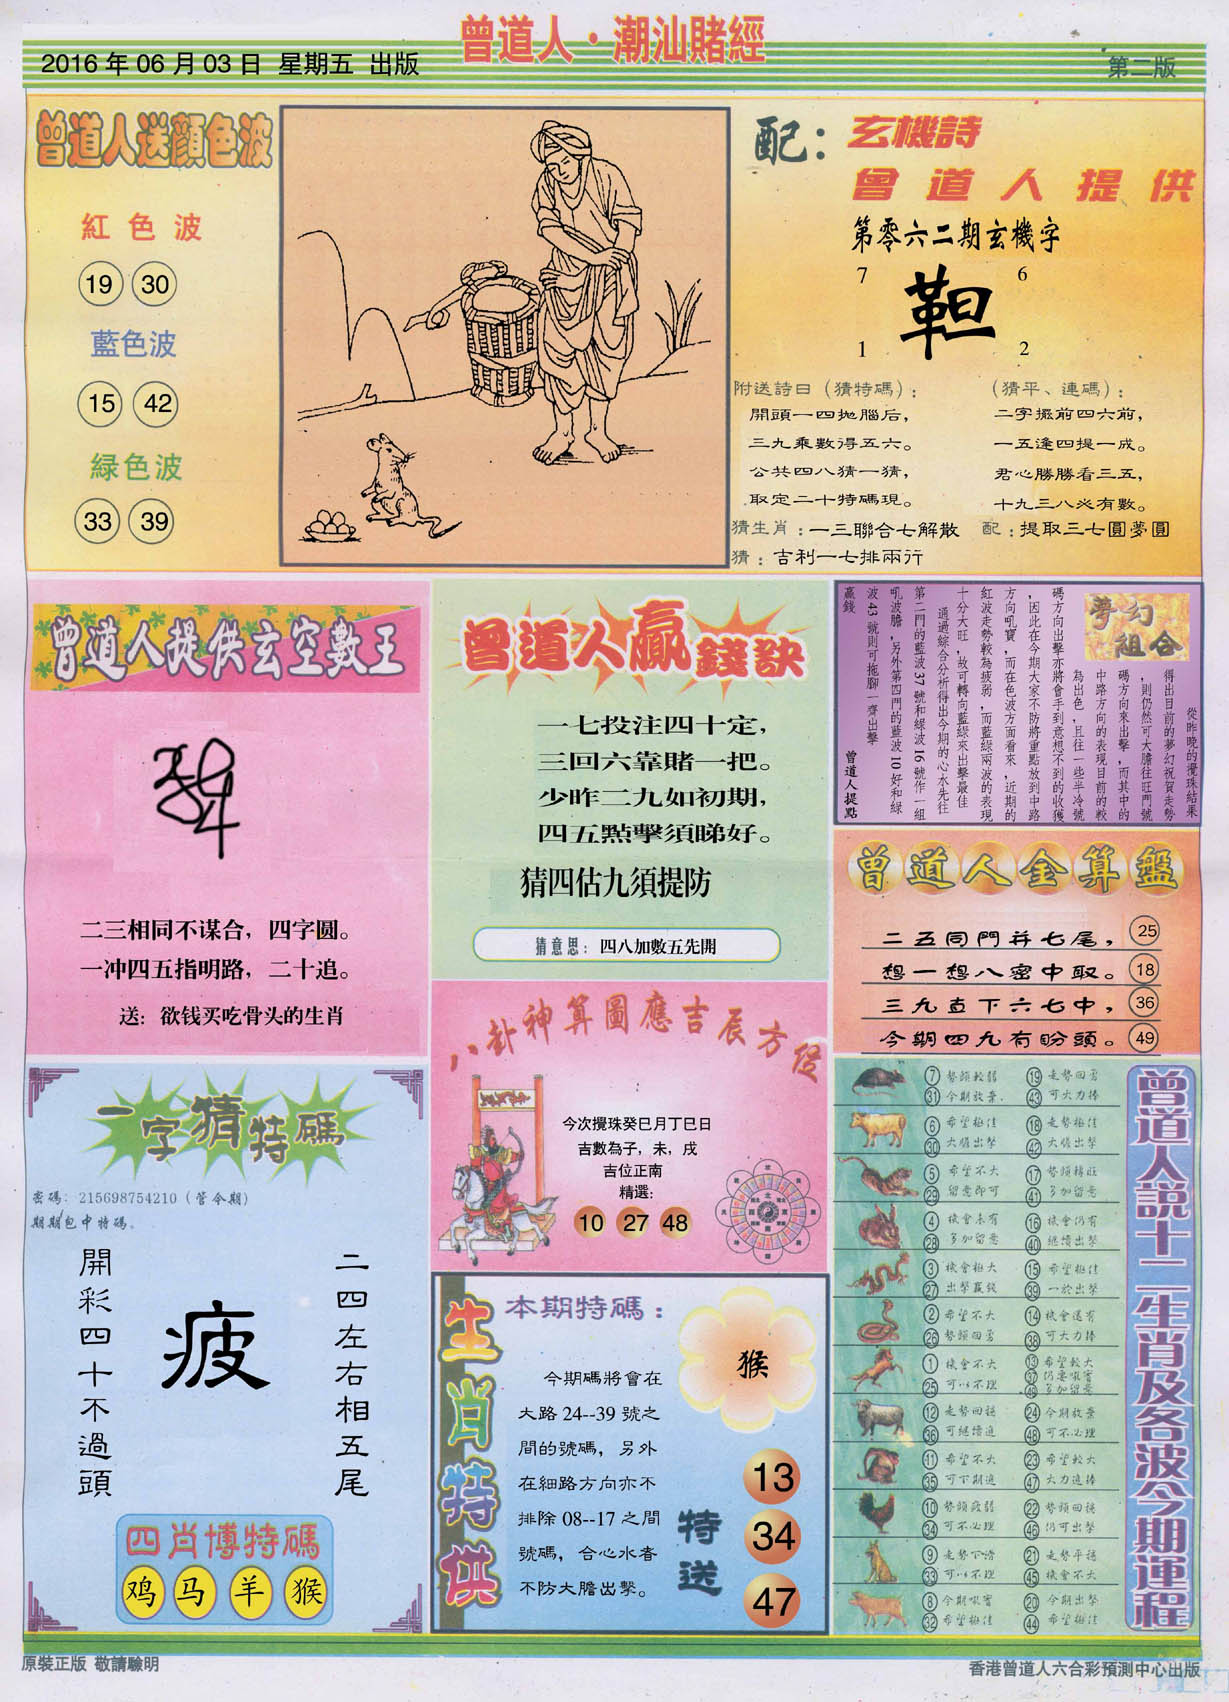 曾道人·潮汕賭經
2016 年 06 月 03 日  星期五  出版
第二版
曾道人送顔色波
紅色波
19 30
藍色波
15 42
緑色波
33 39
配：玄機詩
曾道人提供
第零六二期玄機字
7 6
靼
1 2
附送詩曰（猜特碼）：
開頭一四拋腦后，
三九乘數得五六。
公共四八猜一猜，
取定二十特碼現。
（猜平、連碼）：
二字擺前四六前，
一五逢四提一成。
君心勝勝看三五，
十九三八必有數。
猜生肖：一三聯合七解散
配：提取三七圓夢圓
猜：吉利一七排兩行
曾道人提供玄空數王
二三相同不谋合，四字圆。
一冲四五指明路，二十追。
送：欲钱买吃骨头的生肖
曾道人贏錢訣
一七投注四十定，
三回六靠賭一把。
少昨二九如初期，
四五點擊須睇好。
猜四估九須提防
猜意思：四八加數五先開
夢幻組合
從昨晚的攪珠結果
得出目前的夢幻祝賀走勢
，則仍然可大膽往旺門號
碼方向來出擊，而其中的
中路方向的表現目前的較
為出色，且往一些半冷號
碼方向出擊亦將會手到意想不到的收獲
，因此在今期大家不防將重點放到中路
方向吼寶，而在色波方面看來，近期的
紅波走勢較為疲弱，而藍綠兩波的表現
十分大旺，故可轉向藍綠來出擊最佳
通過綜合分析得出今期的心水先往
第二門的藍波 37 號和綠波 16 號作一組
吼波膽，另外第四門的藍波 10 好和綠
波 43 號則可拖腳一齊出擊
贏錢
曾道人提點
曾道人金算盤
二五同門并七尾， 25
想一想八密中取。 18
三九直下六七中， 36
今期四九有盼頭。 49
八卦神算圖應吉辰方位
今次攪珠癸巳月丁巳日
吉數為子，未，戌
吉位正南
精選：
10 27 48
一字猜特碼
密碼：215698754210（管令期）
期期包中特碼。
開彩四十不過頭
疲
二四左右相五尾
四肖博特碼
鸡 马 羊 猴
生肖特供
本期特碼：
猴
今期碼將會在
大路 24--39 號之
間的號碼，另外
在細路方向亦不
排除 08--17 之間
號碼，合心水者
不防大膽出擊。
特送
13
34
47
曾道人説十二生肖及各波今期運程
7 勢頭較弱 19 走勢回勇
31 今期放棄. 43 可大力捧
6 希望極佳 18 走勢極佳
30 大膽出擊 42 大膽出擊
5 希望不大 17 勢頭轉旺
29 留意即可 41 多加留意
4 機會未有 16 機會仍有
28 多加留意 40 繼續出擊
3 機會極大 15 希望極佳
27 出擊贏錢 39 一於出擊
2 希望不大 14 機會還有
26 勢頭回勇 38 可大力捧
1 機會不大 13 希望較大
25 可以不理 37 仍要吸寶
49 多加留意
12 走勢回穩 24 今期放棄
36 可繼續追 48 可不必理
11 希望不大 23 希望較大
35 可下期追 47 大力追捧
10 勢頭疲弱 22 勢頭回穩
34 可不必理 46 仍可出擊
9 走勢下滑 21 走勢平穩
33 可以不理 45 機會不大
8 今期吸寶 20 今期出擊
32 希望極佳 44 希望極佳
原裝正版  敬請驗明
香港曾道人六合彩預測中心出版